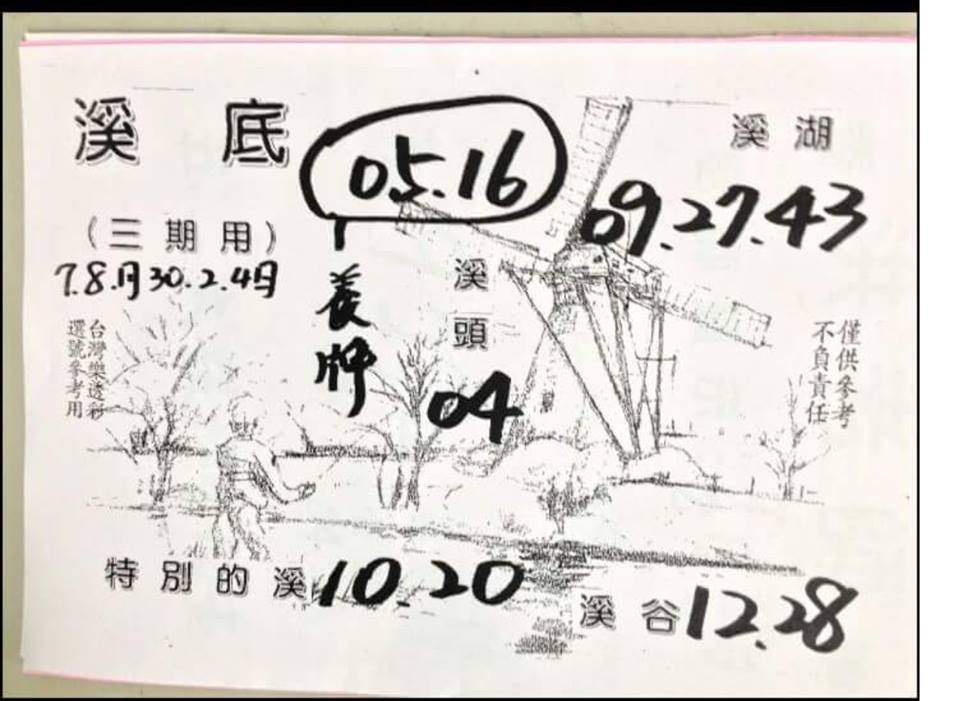 溪底
05.16
溪湖
09.27.43
(三期用)
7.8.月30.2.4日
養牌
溪頭
04
台灣樂透彩
選號參考用
僅供參考
不負責任
特別的溪 10.20
溪谷 12.28